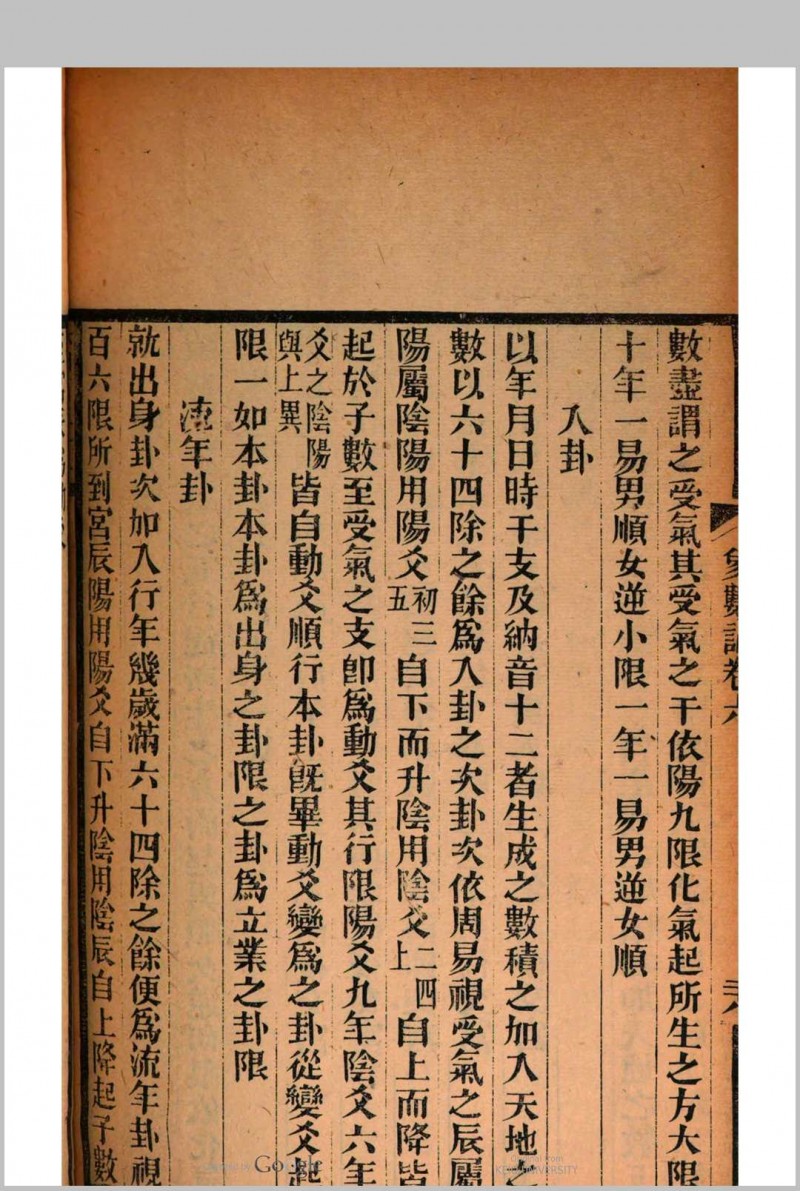 數盡謂之受氣其受氣之干依陽九限化氣起所生之方大限
十年一易男順女逆小限一年一易男逆女順
入卦
以年月日時干支及納音十二者生成之數積之加入天地之
數以六十四除之餘為入卦之次卦次依周易視受氣之辰屬
陽屬陰陽用陽爻初三五自下而升陰用陰爻二四上自上而降皆
起於子數至受氣之支卽為動爻其行限陽爻九年陰爻六年
爻之陰陽與上異皆自動爻順行本卦旣畢動爻變為之卦從變爻起
限一如本卦本卦為出身之卦限之卦為立業之卦限
流年卦
就出身卦次加入行年幾歲滿六十四除之餘便為流年卦視
百六限所到宮辰陽用陽爻自下升陰用陰辰自上降起子數
象數論卷六
Google